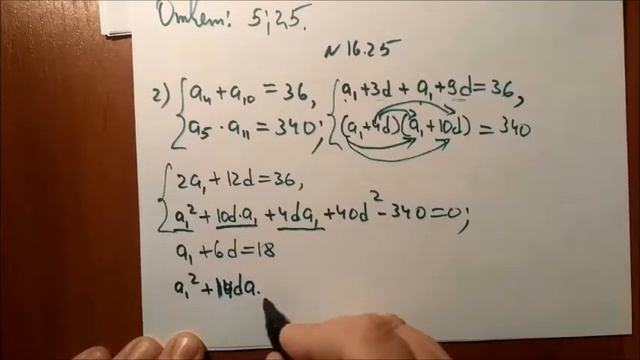 Ответ: 5; 25.
№ 16.25
2) { a₄ + a₁₀ = 36, { a₁ + 3d + a₁ + 9d = 36,
a₅ · a₁₁ = 340; (a₁ + 4d)(a₁ + 10d) = 340
{ 2a₁ + 12d = 36,
a₁² + 10d·a₁ + 4da₁ + 40d² - 340 = 0;
a₁ + 6d = 18
a₁² + 14da.